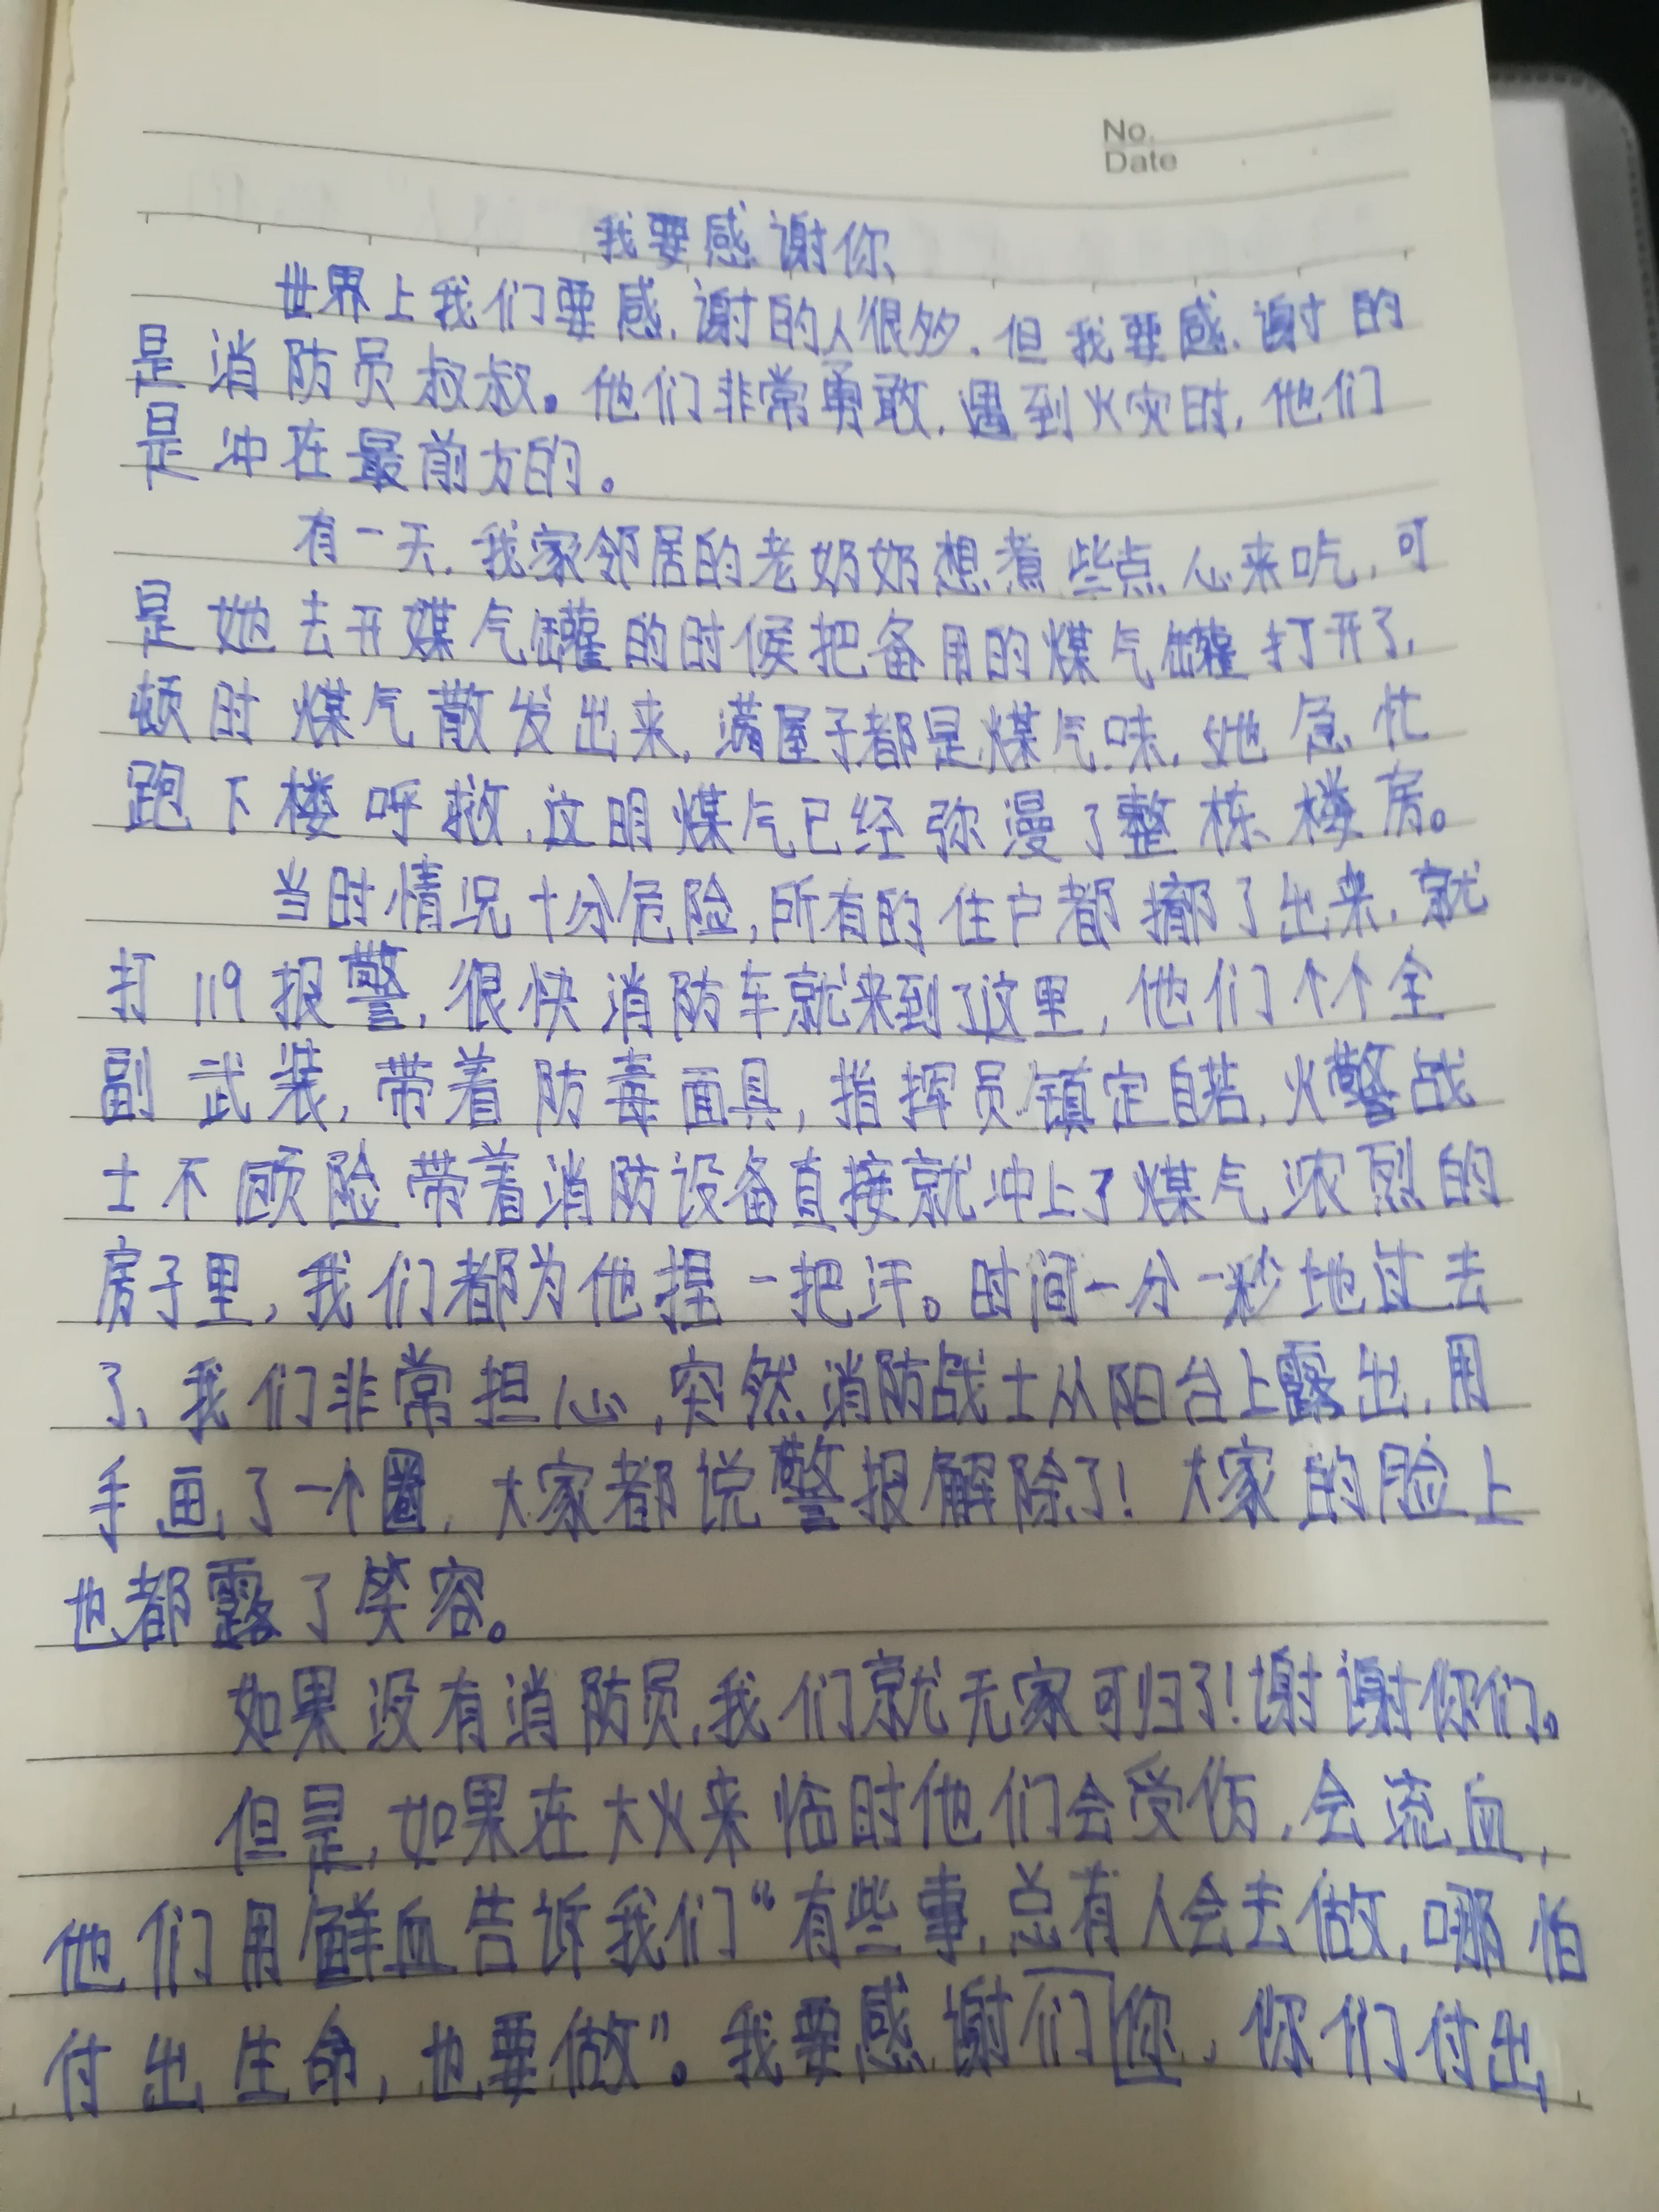 No.
Date
我要感谢你
世界上我们要感谢的人很多,但我要感谢的
是消防员叔叔。他们非常勇敢,遇到火灾时,他们
是冲在最前方的。
有一天,我家邻居的老奶奶想煮些点心来吃,可
是她去开煤气罐的时候把备用的煤气罐打开了,
顿时煤气散发出来,满屋子都是煤气味,她急忙
跑下楼呼救,这明煤气已经弥漫了整栋楼房。
当时情况十分危险,所有的住户都撤了出来,就
打119报警,很快消防车就来到了这里,他们个个全
副武装,带着防毒面具,指挥员镇定自若,火警战
士不顾险带着消防设备直接就冲上了煤气浓烈的
房子里,我们都为他捏一把汗。时间一分一秒地过去
了,我们非常担心,突然消防战士从阳台上露出,用
手画了一个圈,大家都说警报解除了!大家的脸上
也都露了笑容。
如果没有消防员,我们就无家可归了!谢谢你们。
但是,如果在大火来临时他们会受伤,会流血,
他们用鲜血告诉我们“有些事,总有人会去做,哪怕
付出生命,也要做”。我要感谢们你,你们付出